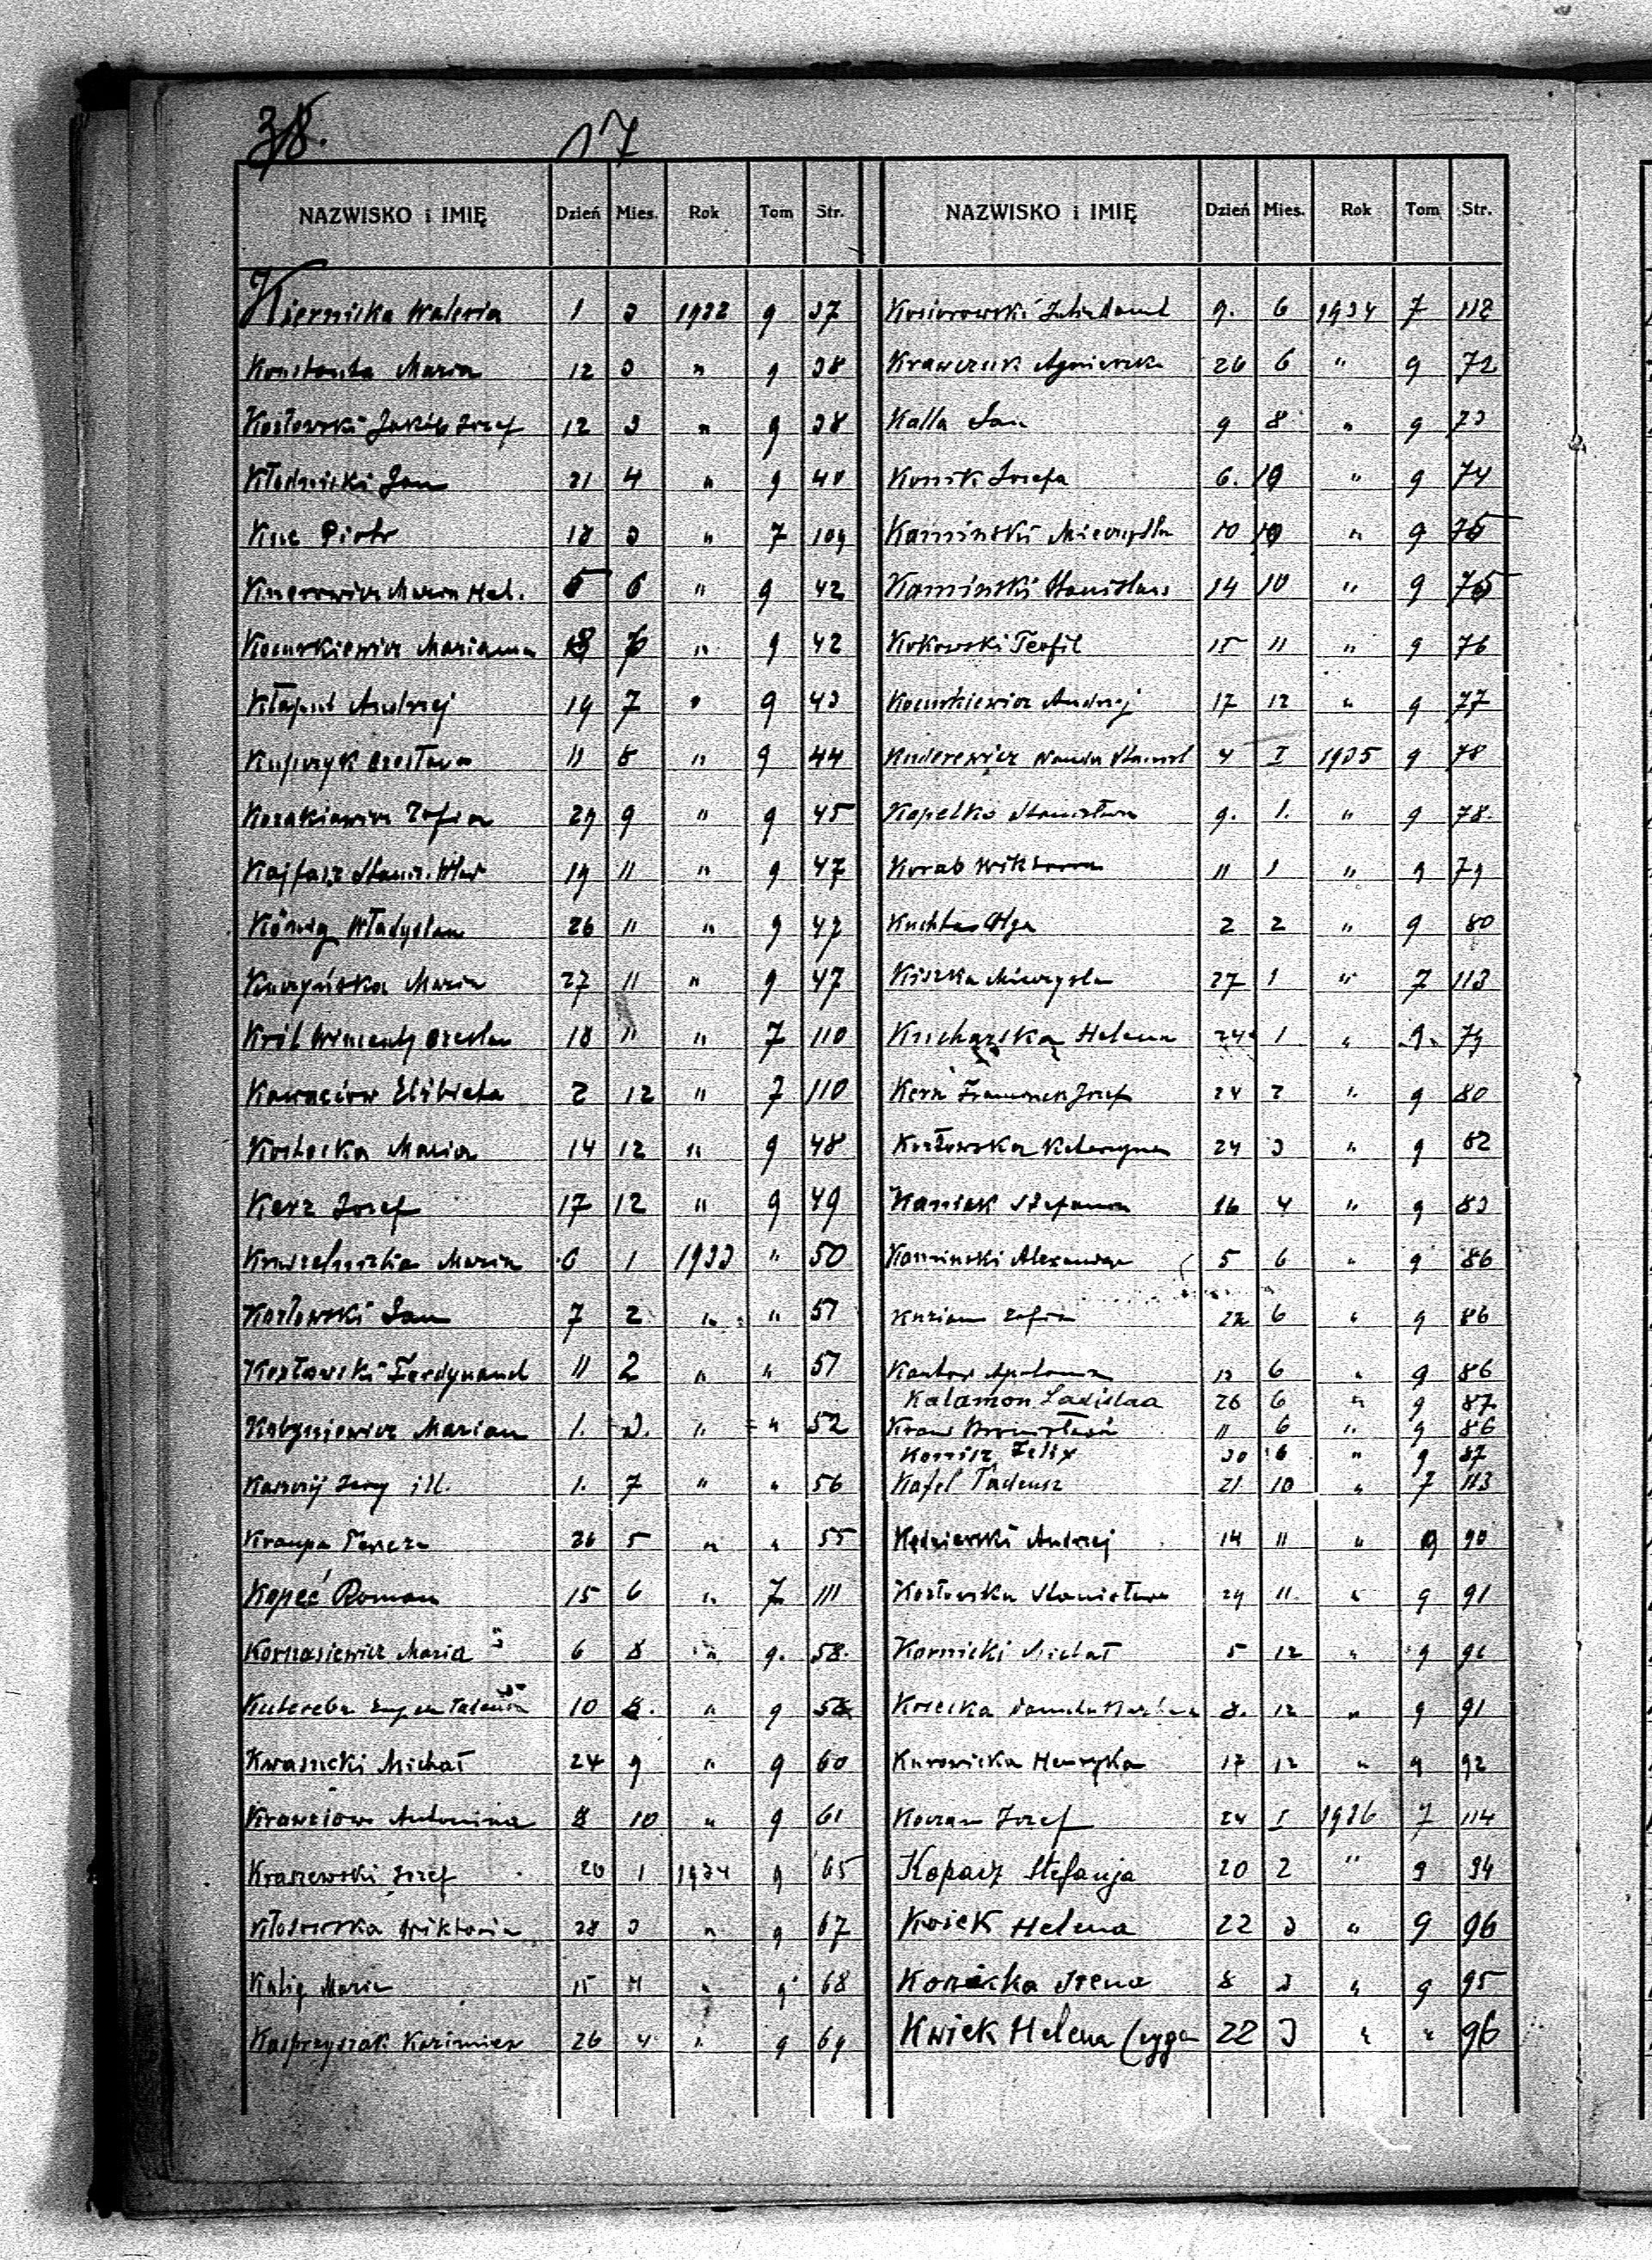 38. 17
NAZWISKO i IMIĘ Dzień Mies. Rok Tom Str.
Kiernicka Waleria 1 3 1932 9 37
Konstanta Maria 12 3 " 9 38
Kozłowski Jakób Józef 12 3 " 9 38
Kłodnicki Jan 21 4 " 9 40
Kuc Piotr 18 3 " 7 109
Maria Hel. 5 6 " 9 42
Kocurkiewicz Marianna 18 " 9 42
Kłaput Andrzej 19 7 " 9 43
Kupczyk Czesława 11 8 " 9 44
Kozakiewicz Zofia 29 9 " 9 45
Kajfasz Stanis. Wład 19 11 " 9 47
König Władysław 26 " " 9 47
Kuczyńska Maria 27 11 " 9 47
Król Wincenty Czesław 18 " " 7 110
Kawaciów Elżbieta 2 12 " 7 110
Kostecka Maria 14 12 " 9 48
Kerz Józef 17 12 " 9 49
Kruszelnicka Maria 6 1 1933 " 50
Kozłowski Jan 7 2 " " 51
Kozłowski Ferdynand 11 2 " " 51
Marian 1. 3. " " 52
Jerzy ill. 1. 7 " " 56
Kraupa Teresa 26 5 " " 55
Kopeć Roman 15 6 " 7 111
Kornasiewicz Maria 6 8 " 9. 58.
Kutereba Eugen Tadeusz 10 8. " 9 58
Kwaśnicki Michał 24 9 " 9 60
Krawciów Antonina 8 10 " 9 61
Kraszewski Józef 20 1 1934 9 65
Kłosowska Wiktoria 28 3 " 9 67
Kalig Maria 15 4 " 9 68
Kasprzyszak Kazimierz 26 4 " 9 69
NAZWISKO i IMIĘ Dzień Mies. Rok Tom Str.
Kosiorowski 9. 6 1934 7 112
Krawczuk Agnieszka 26 6 " 9 72
Kalla Jan 9 8 " 9 73
Konik Józefa 6. 10 " 9 74
Kamiński Mieczysław 10 10 " 9 75
Kamiński Stanisław 14 10 " 9 75
Kokowski Teofil 15 11 " 9 76
Kocurkiewicz Andrzej 17 12 " 9 77
Kuderewicz Wanda 4 I 1935 9 78
Kopelko Stanisława 9. 1. " 9 78.
Korab Wiktoria 11 1 " 9 79
Kuchta Olga 2 2 " 9 80
Kiszka Mieczysław 27 1 " 7 113
Kucharska Helena 24 1 " 9 79
Kerz Franciszek Józef 24 2 " 9 80
Kozłowska Katarzyna 24 3 " 9 82
Kaniak Stefania 16 4 " 9 83
Kamiński Alexander 5 6 " 9 86
Kuzian Zofia 22 6 " 9 86
Kantor Apolonia 12 6 " 9 86
Kalamon Ladislaa 26 6 " 9 87
Kraus Bronisław 11 6 " 9 86
Kornisz Felix 30 6 " 9 87
Kafel Tadeusz 21 10 " 7 113
Kędzierski Andrzej 14 11 " 9 90
Kozłowska Stanisława 29 11 " 9 91
Kornicki Michał 5 12 " 9 91
8. 12 " 9 91
Kurowicka Henryka 17 12 " 9 92
Koczan Józef 24 I 1936 7 114
Kopacz Stefanja 20 2 " 9 94
Kwiek Helena 22 3 " 9 96
Konicka Irena 8 3 " 9 95
Kwiek Helena (cyga 22 3 " " 96